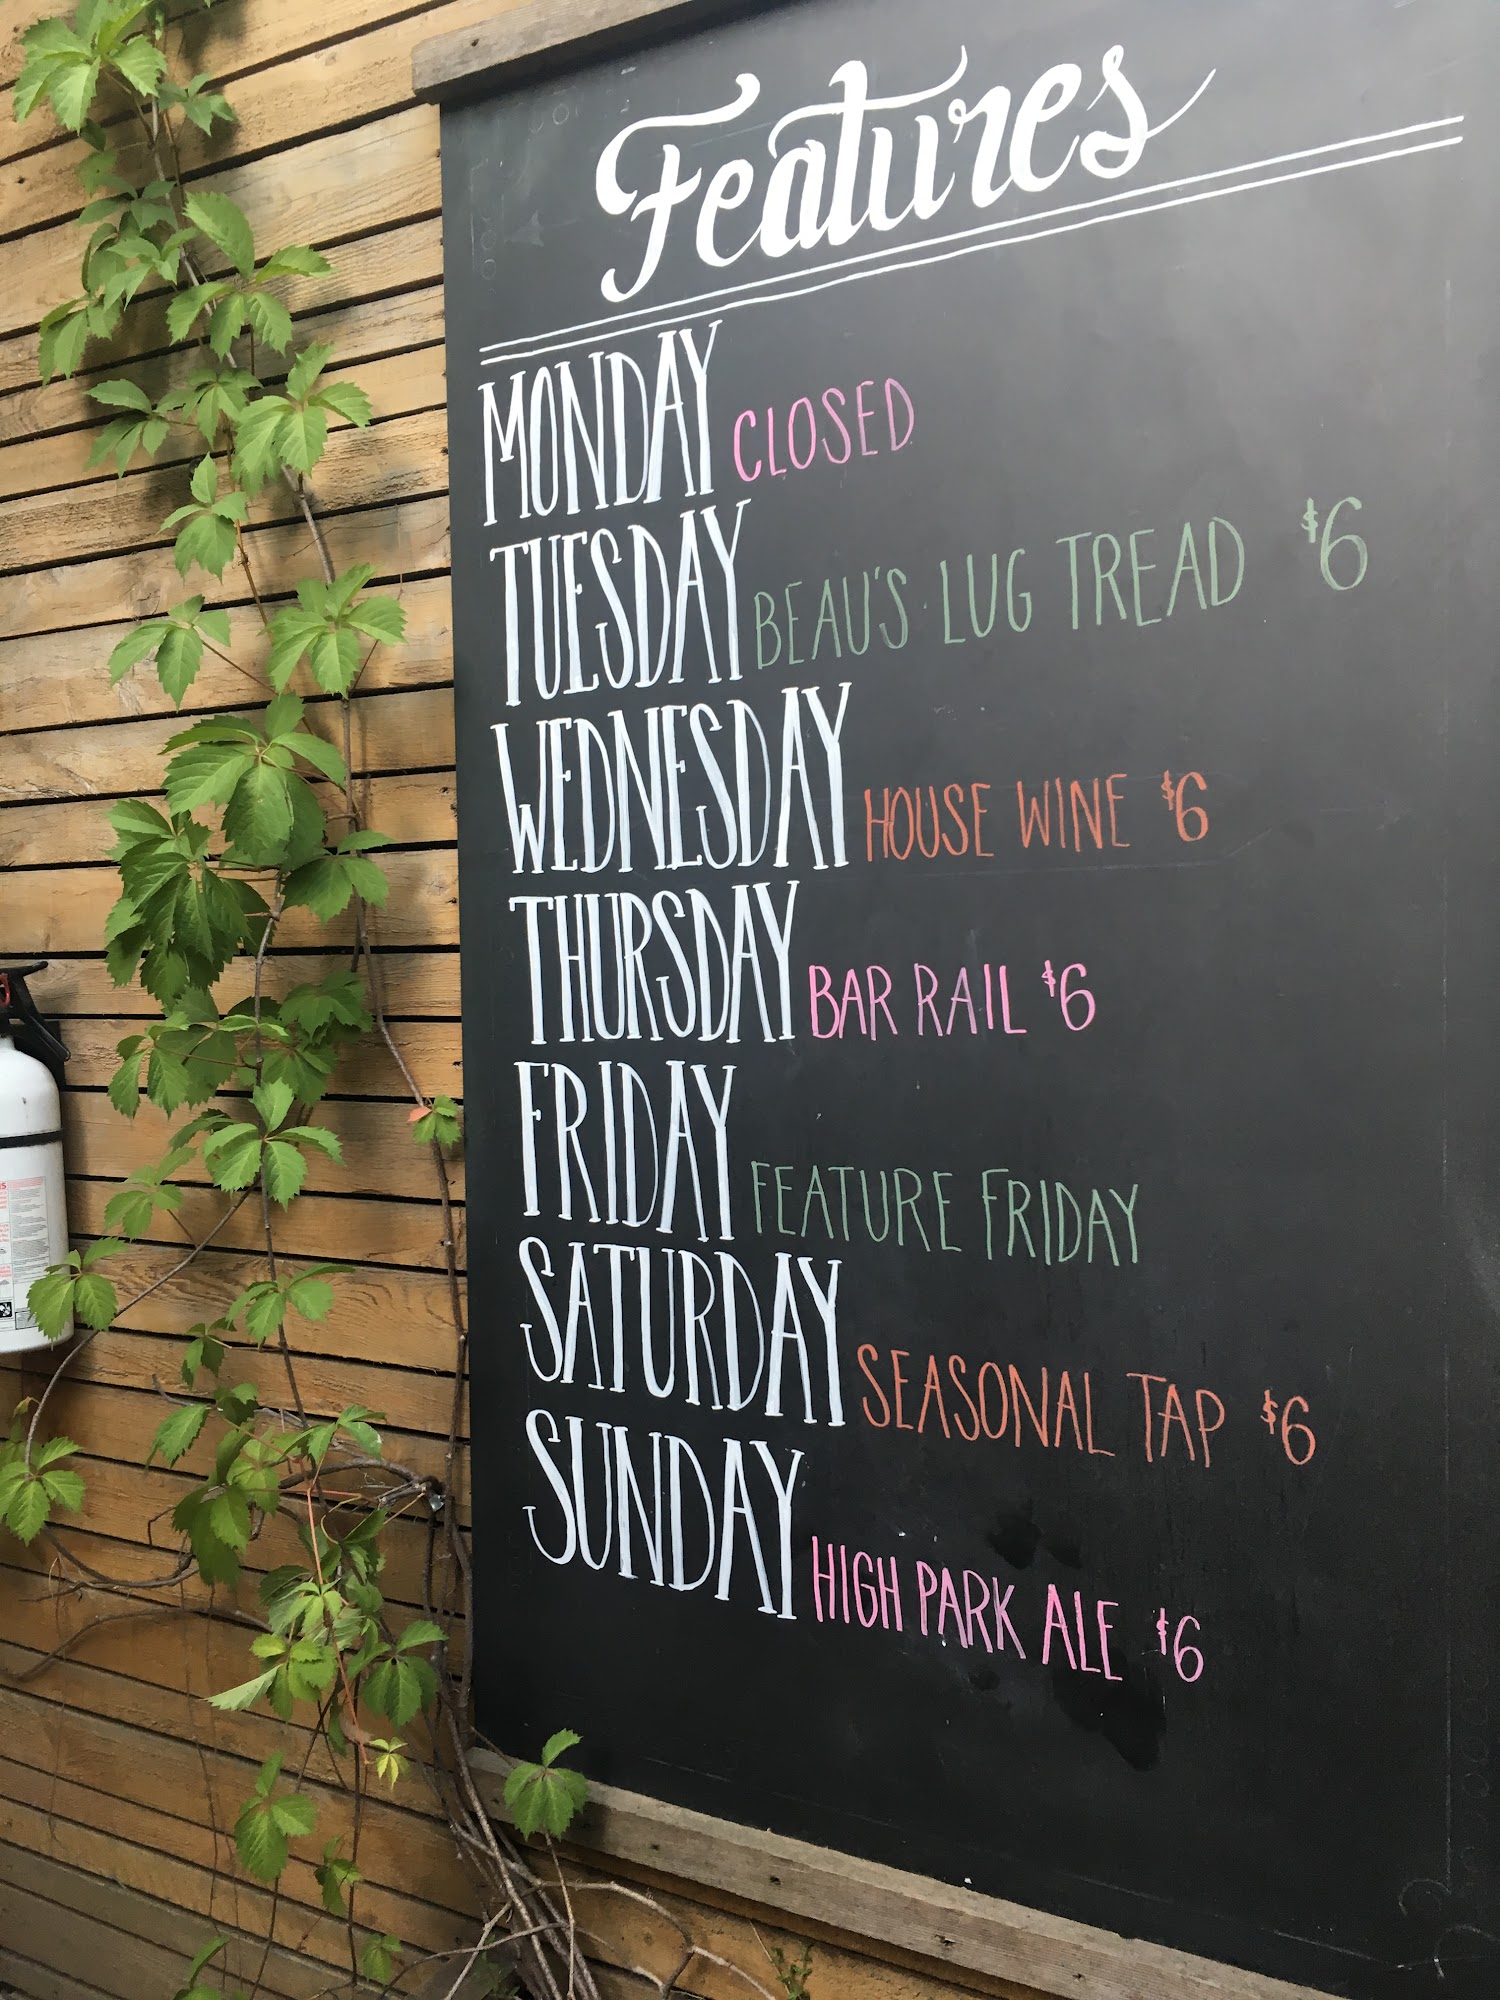 Features
MONDAY CLOSED
TUESDAY BEAU'S LUG TREAD $6
WEDNESDAY HOUSE WINE $6
THURSDAY BAR RAIL $6
FRIDAY FEATURE FRIDAY
SATURDAY SEASONAL TAP $6
SUNDAY HIGH PARK ALE $6